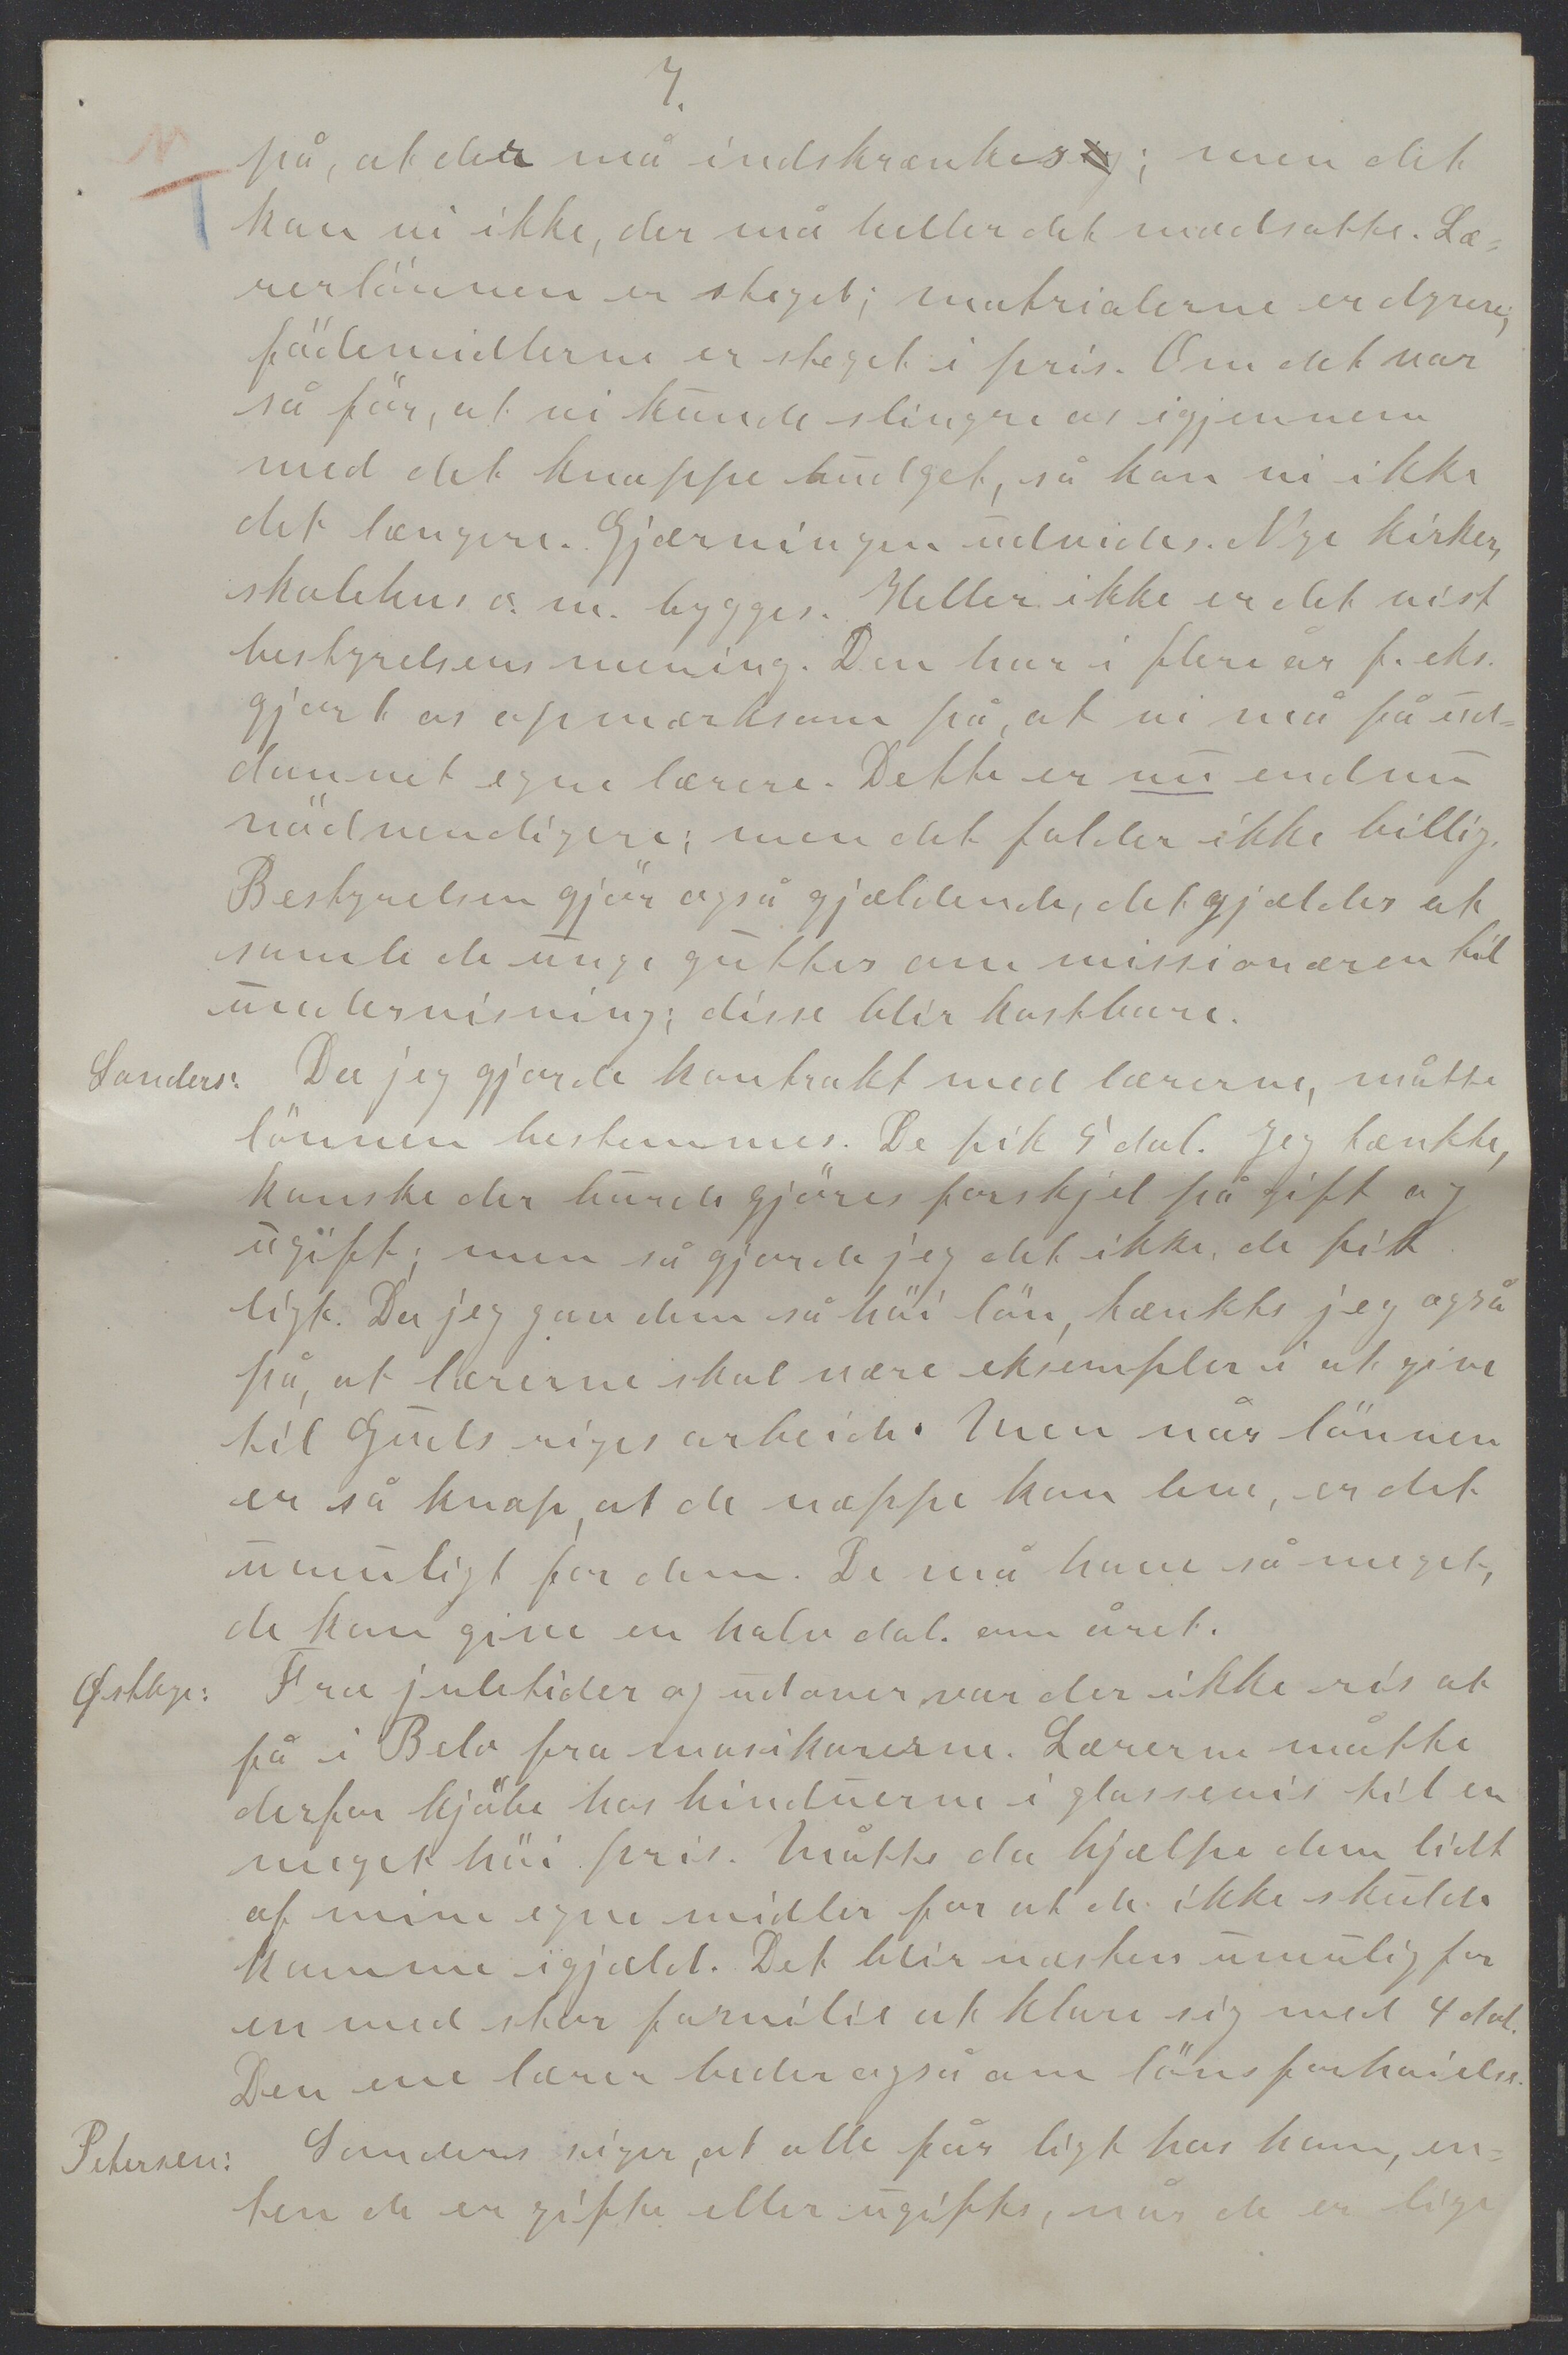 7.
på, at der må indskrænkes; men det
kan vi ikke, der må heller det modsatte. Læ=
rerlönnen er steget; matrialerne er dyrere;
födemidlerne er steget i pris. Om det var
så för, at vi kunde slingre os igjennem
med det knappe budget, så kan vi ikke
det længere. Gjærningen udvides. Nye kirker,
skolehus o. m. bygges. Heller ikke er det vist
bestyrelsens mening. Den har i flere år f. eks.
gjort os opmærksom på, at vi må få ud=
dannet egne lærere. Dette er nu endnu
nödvendigere; men det falder ikke billig.
Bestyrelsen gjör også gjældende, det gjælder at
samle de unge gutter om missionæren til
undervisning; disse blir kostbare.
Sanders: Da jeg gjorde kontrakt med lærerne, måtte
lönnen bestemmes. De fik 5 dol. Jeg tænkte,
kanske der burde gjöres forskjel på gift og
ugift; men så gjorde jeg det ikke, de fik
ligt. Da jeg gav dem så höi lön, tænkte jeg også
på, at lærerne skal være eksempler i at give
til Guds riges arbeide. Men når lönnen
er så knap, at de næppe kan leve, er det
umuligt for dem. De må have så meget,
de kan give en halv dol. om året.
Østbye: Fra juletider og udover var der ikke ris at
få i Belo fra masikorerne. Lærerne måtte
derfor kjöbe hos hinduerne i glassevis til en
meget höi pris. Måtte da hjælpe dem lidt
af mine egne midler for at de ikke skulde
komme igjæld. Det blir næsten umulig for
en med stor familie at klare sig med 4 dol.
Den ene lærer beder også om lönsforhöielse.
Petersen: Sanders siger, at alle får ligt hos ham, en=
ten de er gifte eller ugifte, når de er lige